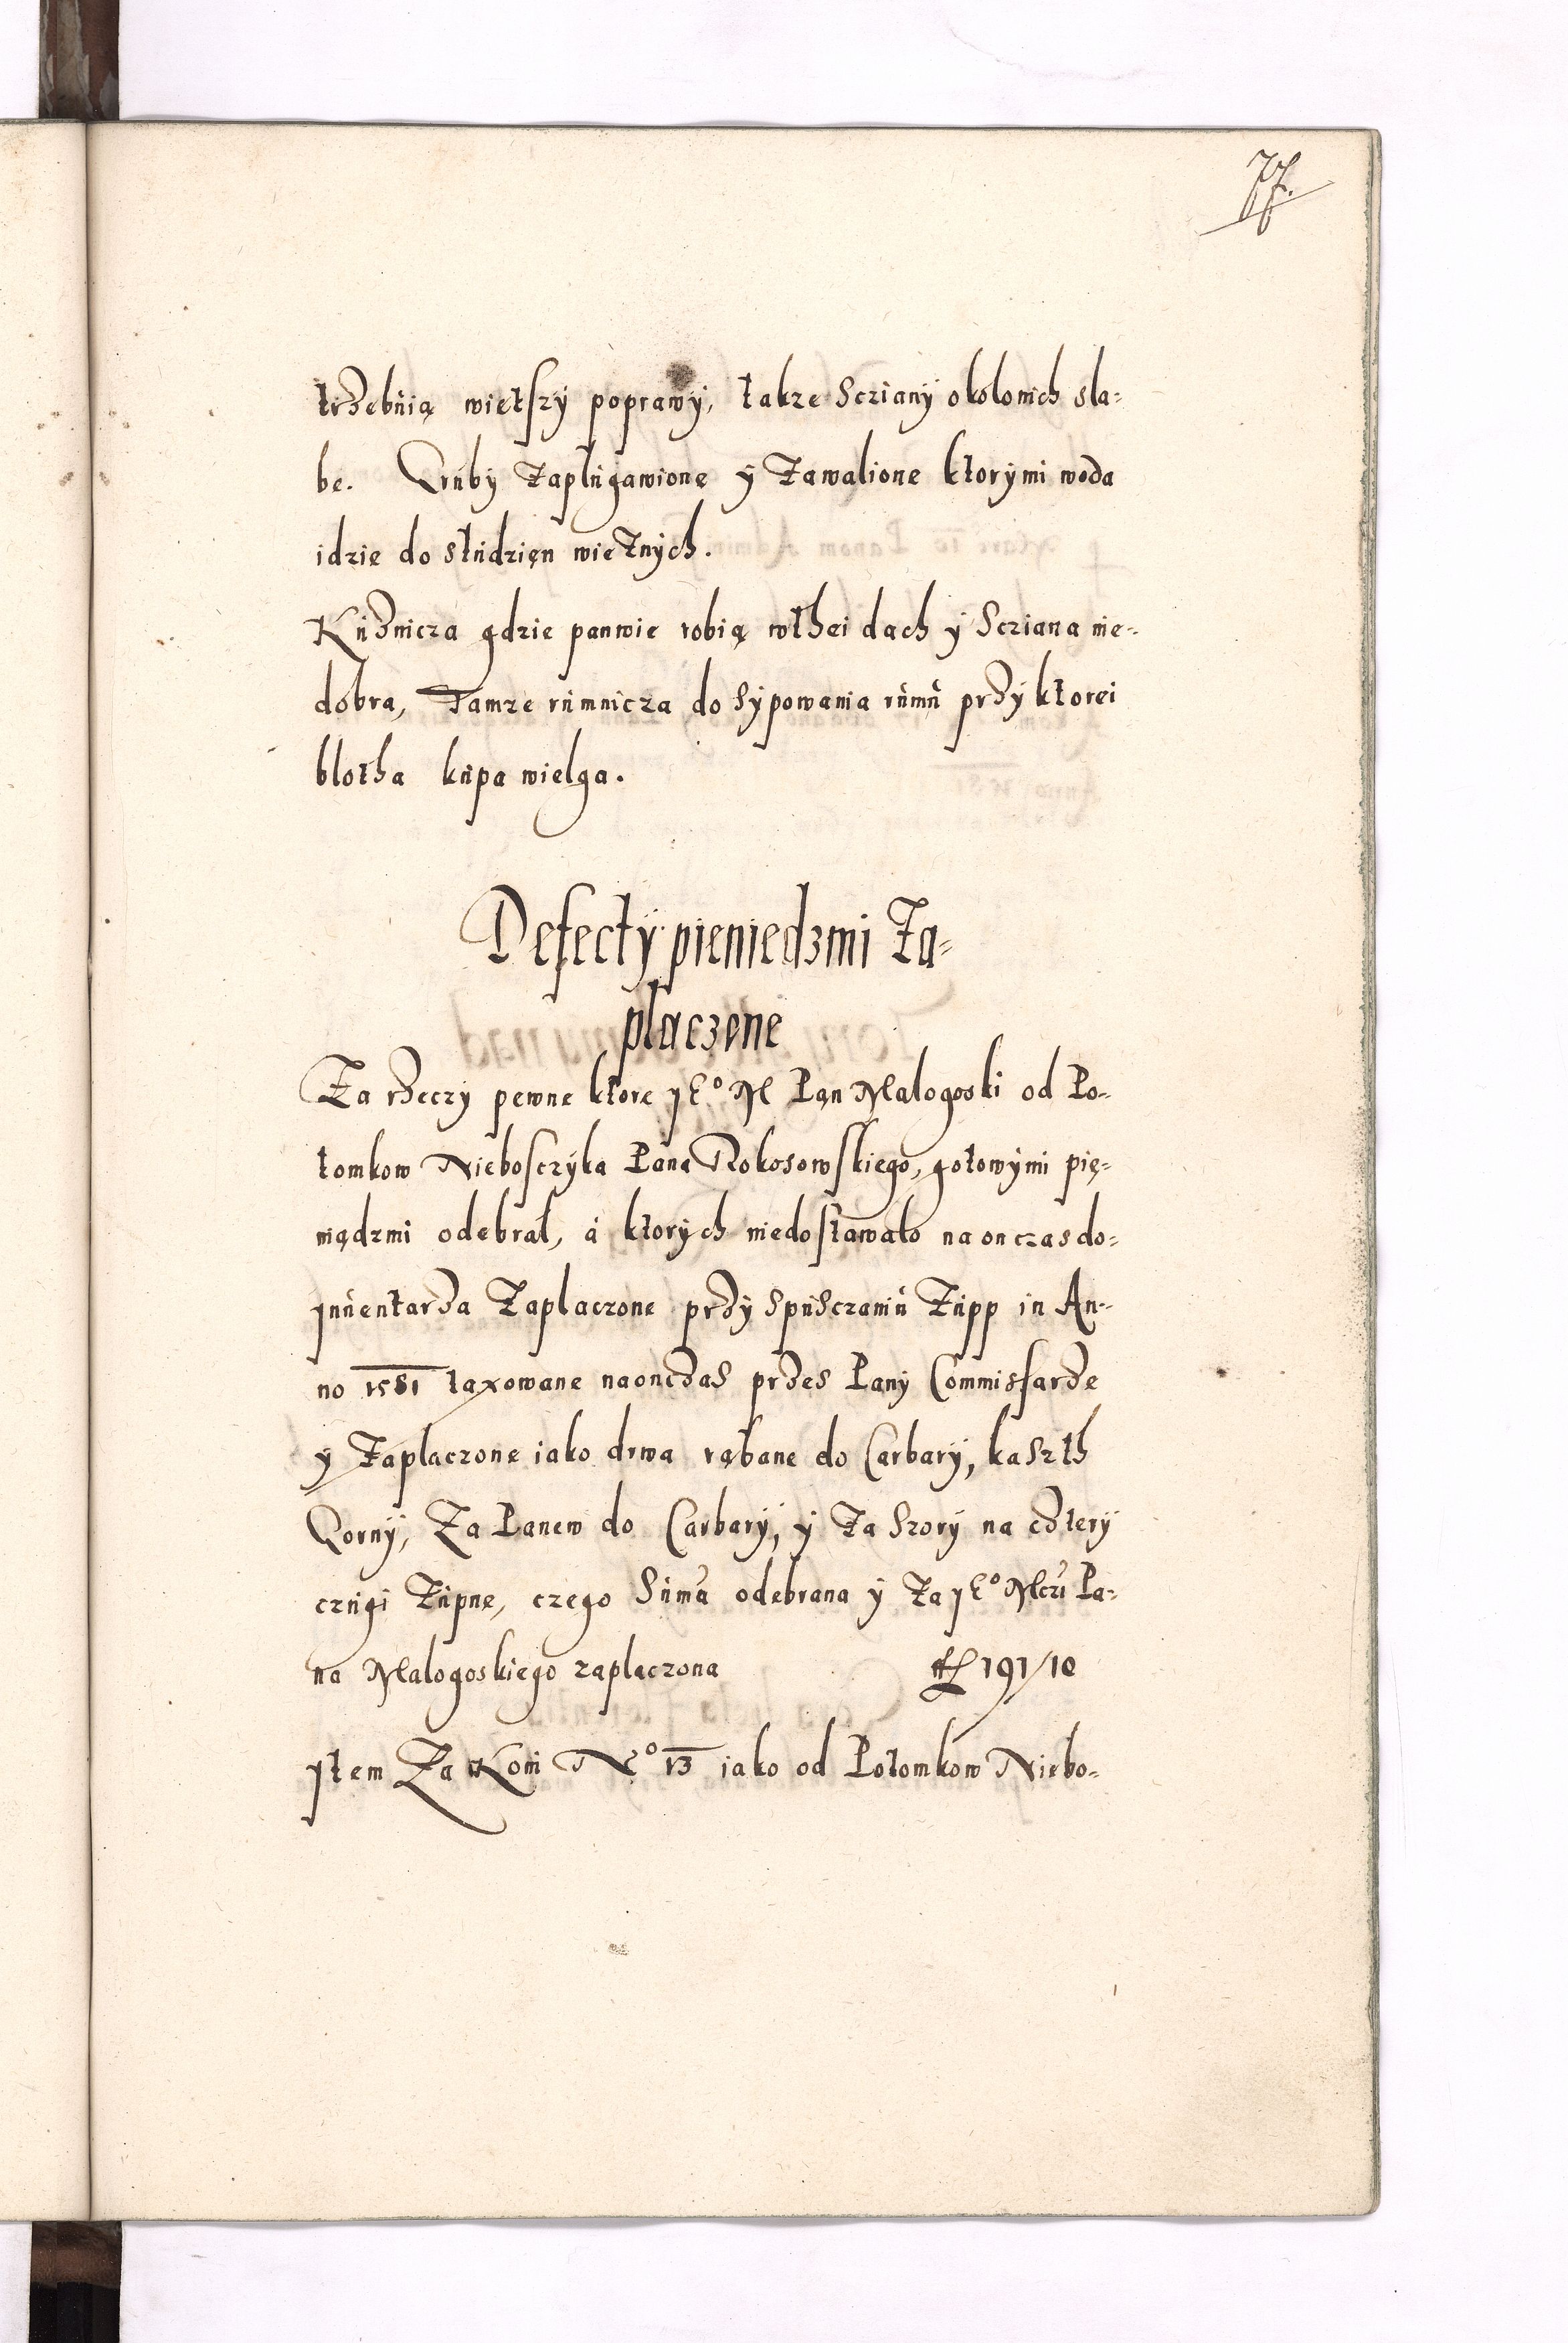 77.
trzebuią wietszy poprawy, takze Scziany okolonich sla=
be. Gruby Zaplugawione y Zawalione ktorymi woda
idzie do studzien wieznych.
Kuznicza gdzie panwie robią wthei dach y Scziana nie=
dobra, Tamze rumnicza do Sypowania rumu przy ktorei
blotha kupa wielga.
Defecty pieniedzmi Za=
placzone
Za rzeczy pewne ktore JEº M Pan Malogoski od Po=
tomkow Nieboszczyka Pana Rokosowskiego, gotowymi pie=
niądzmi odebrał, á ktorych niedostawało na on czas do=
Inuentarza Zaplaczone przy Spusczaniu Zupp in An=
no 1581 taxowane naonczas przes Pany Commissarze
y Zaplaczone iako drwa rąbane do Carbary, kaszth
Gorny, Za Panew do Carbary, y Za Szory na cztery
czugi Zupne, czego Suma odebrana y Za JEº Mczi Pa=
na Malogoskiego zaplaczona fl 191/10
Item Za Koni Nº 13 iako od Potomkow Niebo=